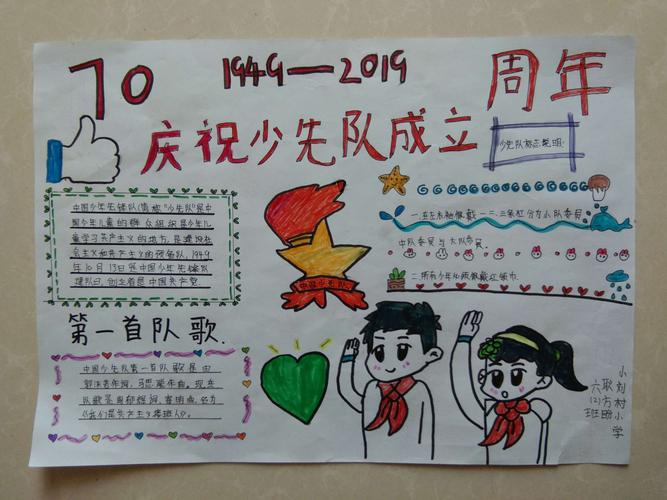 70
1949—2019
周年
庆祝少先队成立
少先队标志说明:
中国少年先锋队(简称"少先队")是中
国少年儿童的群众组织是少年儿
童学习共产主义的地方,是建设社
会主义和共产主义的预备队,1949
年10月13日是中国少年先锋队
建队日,创立者是中国共产党.
一.在左衣袖佩戴一二三条杠分为小队委员
中队委员与大队委员.
二.所有少年必须佩戴红领巾.
中国少先队
第一首队歌.
中国少先队第一首队歌是由
郭沫若作词,马思聪作曲。现在
队歌是周郁辉词,寄明曲,名为
《我们是共产主义接班人》。
小刘村小学
六(2)班